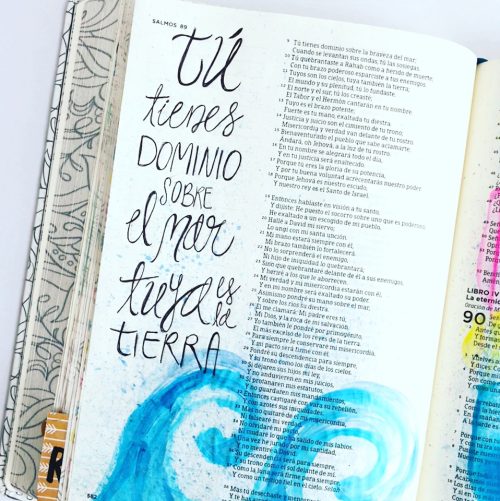 SALMOS 89
TÚ
tienes
DOMINIO
SOBRE
el mar
tuya es
la
TIERRA
9 Tú tienes dominio sobre la braveza del mar;
Cuando se levantan sus ondas, tú las sosiegas.
10 Tú quebrantaste a Rahab como a herido de muerte;
Con tu brazo poderoso esparciste a tus enemigos.
11 Tuyos son los cielos, tuya también la tierra;
El mundo y su plenitud, tú lo fundaste.
12 El norte y el sur, tú los creaste;
El Tabor y el Hermón cantarán en tu nombre.
13 Tuyo es el brazo potente;
Fuerte es tu mano, exaltada tu diestra.
14 Justicia y juicio son el cimiento de tu trono;
Misericordia y verdad van delante de tu rostro.
15 Bienaventurado el pueblo que sabe aclamarte;
Andará, oh Jehová, a la luz de tu rostro.
16 En tu nombre se alegrará todo el día,
Y en tu justicia será enaltecido.
17 Porque tú eres la gloria de su potencia,
Y por tu buena voluntad acrecentarás nuestro poder.
18 Porque Jehová es nuestro escudo,
Y nuestro rey es el Santo de Israel.
19 Entonces hablaste en visión a tu santo,
Y dijiste: He puesto el socorro sobre uno que es poderoso;
He exaltado a un escogido de mi pueblo.
20 Hallé a David mi siervo;
Lo ungí con mi santa unción.
21 Mi mano estará siempre con él,
Mi brazo también lo fortalecerá.
22 No lo sorprenderá el enemigo,
Ni hijo de iniquidad lo quebrantará;
23 Sino que quebrantaré delante de él a sus enemigos,
Y heriré a los que le aborrecen.
24 Mi verdad y mi misericordia estarán con él,
Y en mi nombre será exaltado su poder.
25 Asimismo pondré su mano sobre el mar,
Y sobre los ríos su diestra.
26 El me clamará: Mi padre eres tú,
Mi Dios, y la roca de mi salvación.
27 Yo también le pondré por primogénito,
El más excelso de los reyes de la tierra.
28 Para siempre le conservaré mi misericordia,
Y mi pacto será firme con él.
29 Pondré su descendencia para siempre,
Y su trono como los días de los cielos.
30 Si dejaren sus hijos mi ley,
Y no anduvieren en mis juicios,
31 Si profanaren mis estatutos,
Y no guardaren mis mandamientos,
32 Entonces castigaré con vara su rebelión,
Y con azotes sus iniquidades.
33 Mas no quitaré de él mi misericordia,
Ni falsearé mi verdad.
34 No olvidaré mi pacto,
Ni mudaré lo que ha salido de mis labios.
35 Una vez he jurado por mi santidad,
Y no mentiré a David.
36 Su descendencia será para siempre,
Y su trono como el sol delante de mí.
37 Como la luna será firme para siempre,
Y como un testigo fiel en el cielo. Selah
38 Mas tú desechaste y menospreciaste
LIBRO IV
La eternidad
90
R
582